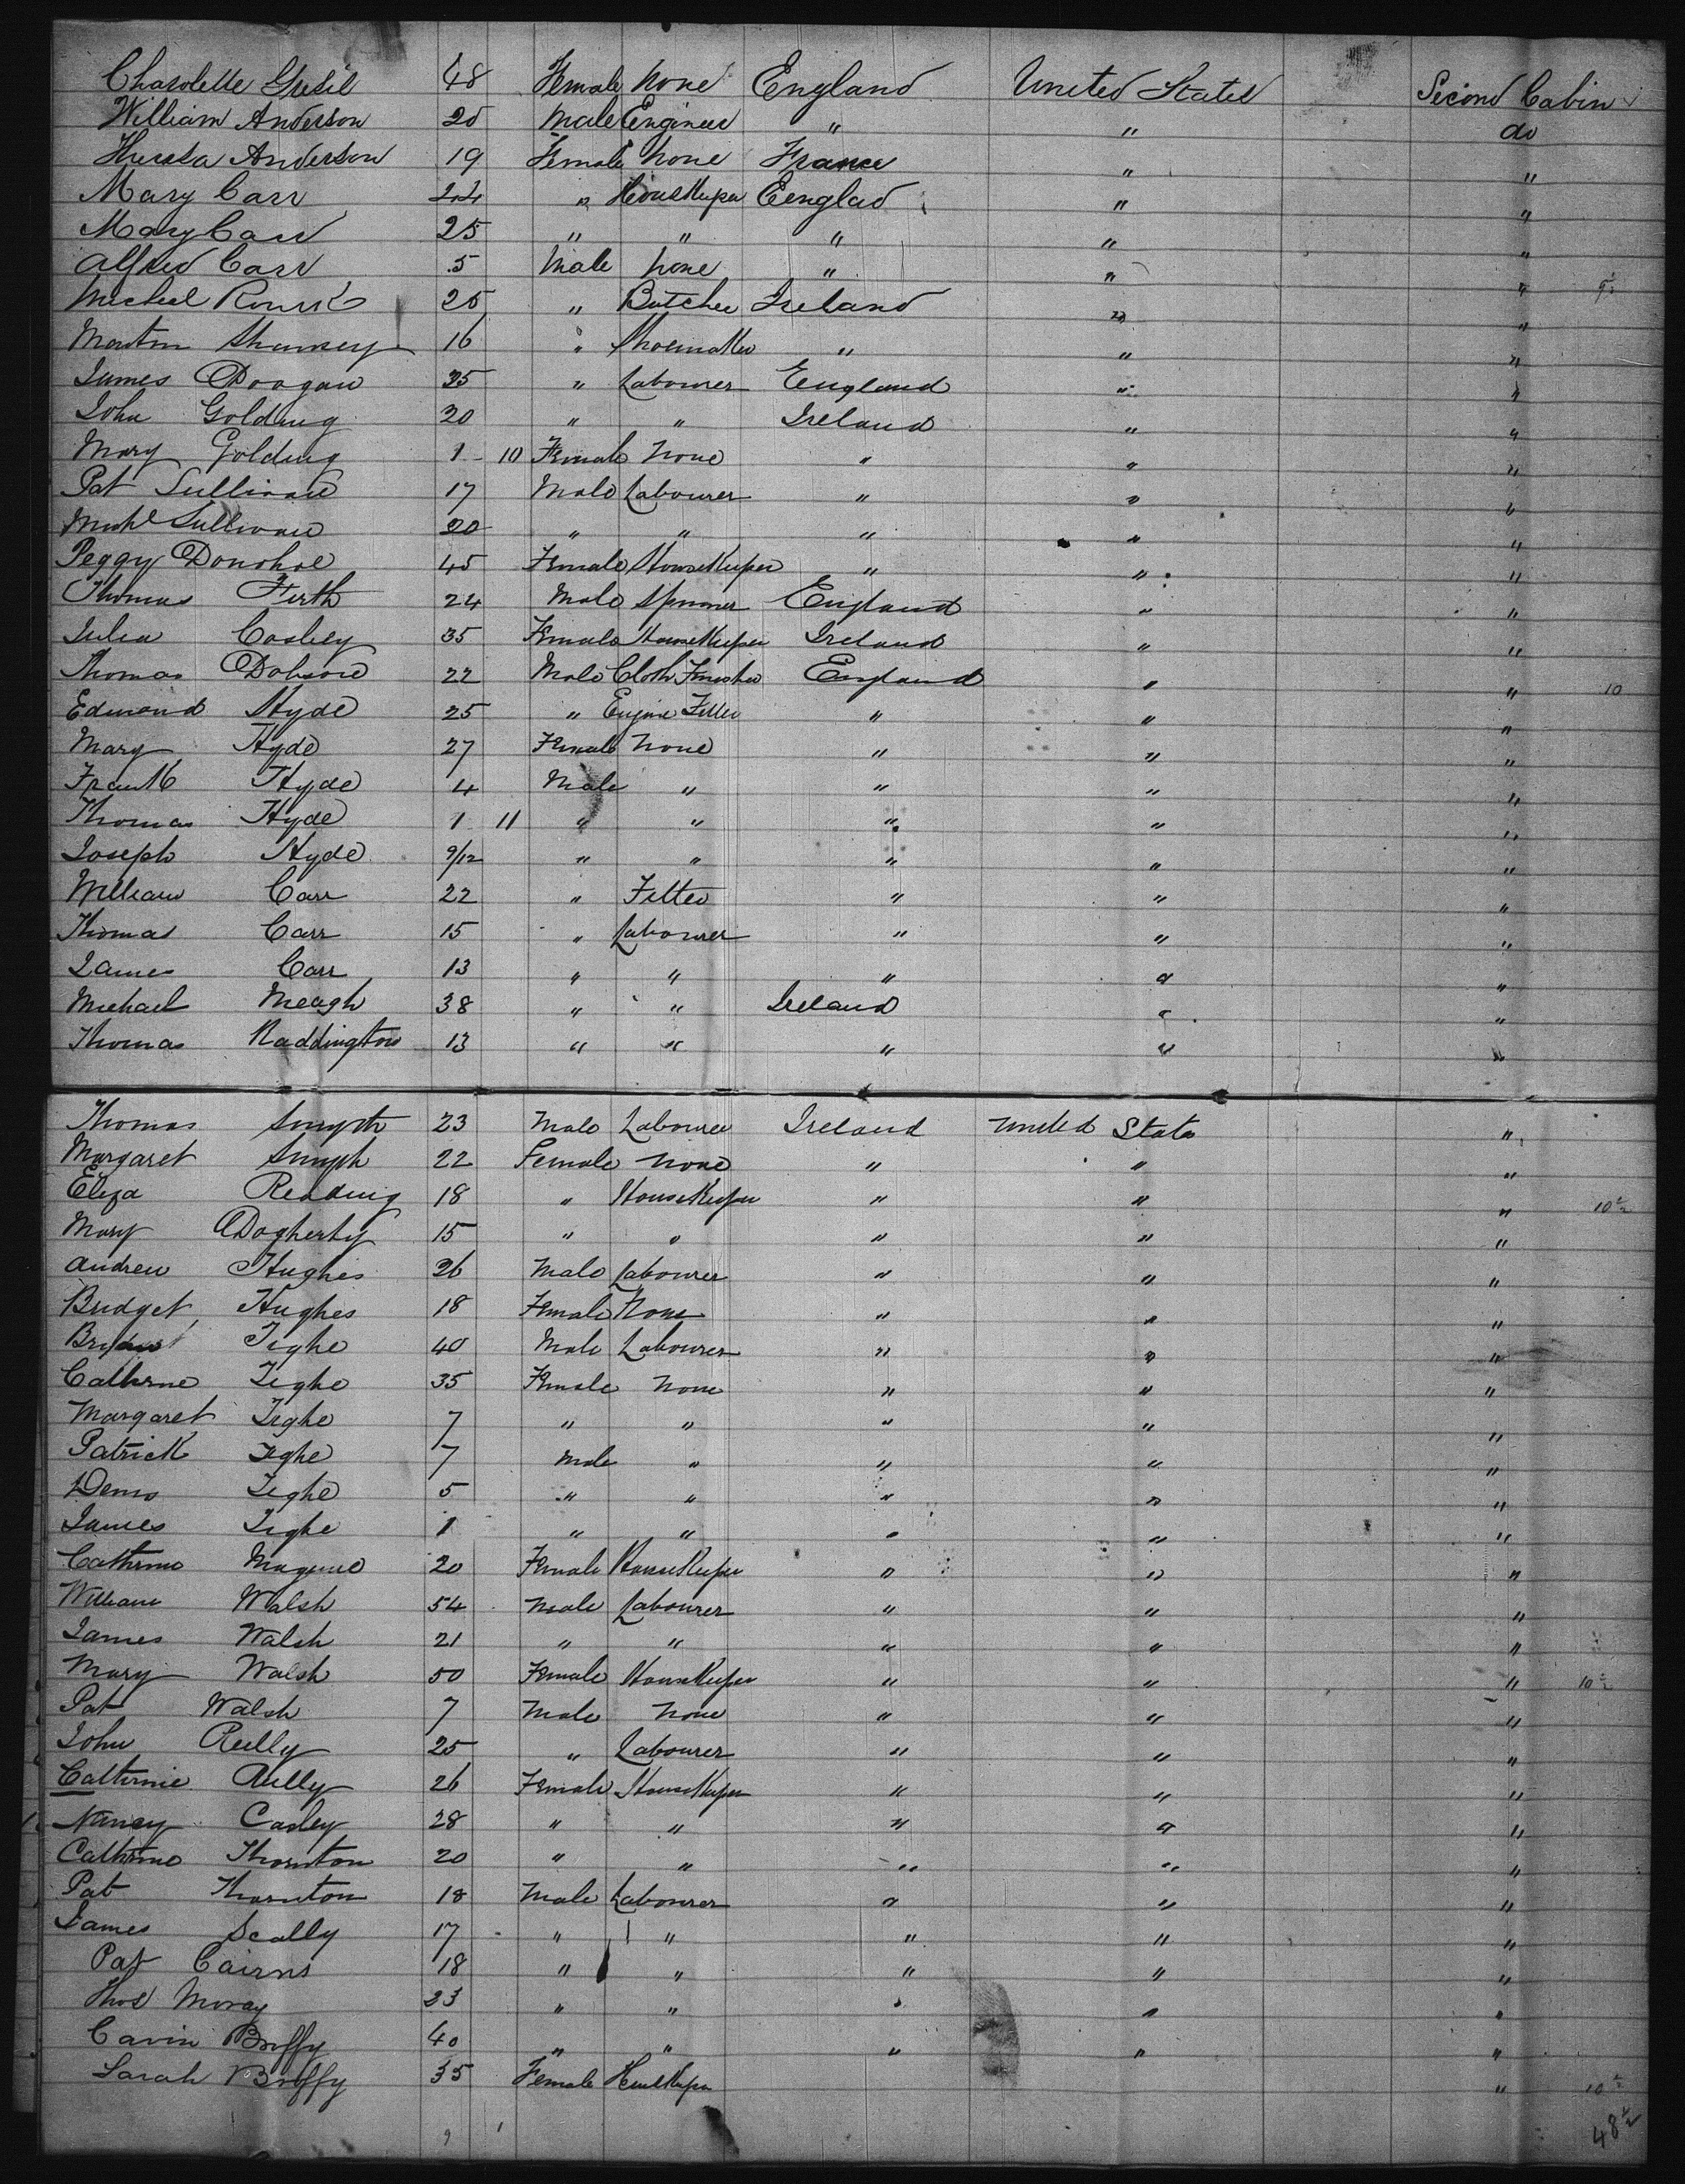 Charolette 48 Female None England United States Second Cabin
William Anderson 20 Male Engineer " " do
Anderson 19 Female None France " "
Mary Carr 24 " Housekeper Eenglad " "
Mary Carr 25 " " " " "
Alfred Carr 5 Male None " " "
Micheel 25 " Butcher Ireland " "
16 " Shoemaker " " "
James Doogan 25 " Labourer England " "
John Golding 30 " " Ireland " "
Mary Golding 1 10 Female None " " "
Pat Sullivan 17 Male Labourer " " "
Michl Sullivan 20 " " " " "
Peggy Donohoe 45 Female HouseKeeper " " "
Thomas Firth 24 Male Spinner England " "
Julia Cosley 35 Female HouseKeeper Ireland " "
Thomas Dobson 22 Male Cloth Finisher England " " 10
Edmond Hyde 25 " Engine Fitter " " "
Mary Hyde 27 Female None " " "
Frank Hyde 4 Male " " " "
Thomas Hyde 1 11 " " " " "
Joseph Hyde 9/12 " " " " "
William Carr 22 " Fitter " " "
Thomas Carr 15 " Labourer " " "
James Carr 13 " " " " "
Michael Meagh 38 " " Ireland " "
Thomas Raddington 13 " " " " "
Thomas Smyth 23 Male Labourer Ireland United States "
Margaret Smyph 22 Female None " " "
Eliza Reading 18 " HouseKeeper " " " 10 1/2
Mary Dogherty 15 " " " " "
Andrew Hughes 26 Male Labourer " " "
Bridget Hughes 18 Female None " " "
Tighe 40 Male Labourer " " "
Catherine Tighe 35 Female None " " "
Margaret Tighe 7 " " " " "
Patrick Tighe 7 Male " " " "
Denis Tighe 5 " " " " "
James Tighe 1 " " " " "
Catherine Maguire 20 Female HouseKeeper " " "
William Walsh 54 Male Labourer " " "
James Walsh 21 " " " " "
Mary Walsh 50 Female HouseKeeper " " " 10 1/2
Pat Walsh 7 Male None " " "
John Reilly 25 " Labourer " " "
Catherine Reilly 26 Female HouseKeeper " " "
Nancy Casley 28 " " " " "
Catherine Thornton 20 " " " " "
Pat Thornton 18 Male Labourer " " "
James Scally 17 " " " " "
Pat Cairns 18 " " " " "
Thos Moray 23 " " " " "
Cavin Bruffy 40 " " " " "
Sarah Bruffy 35 Female Housekeper " 10 1/2
48 1/2